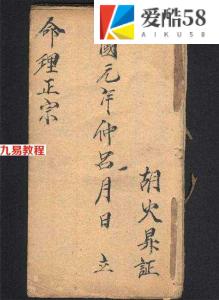 爱酷58
AIKU58
國元年仲呂月日立
命理正宗
胡火昇証
九易教程
www.9yijc.com